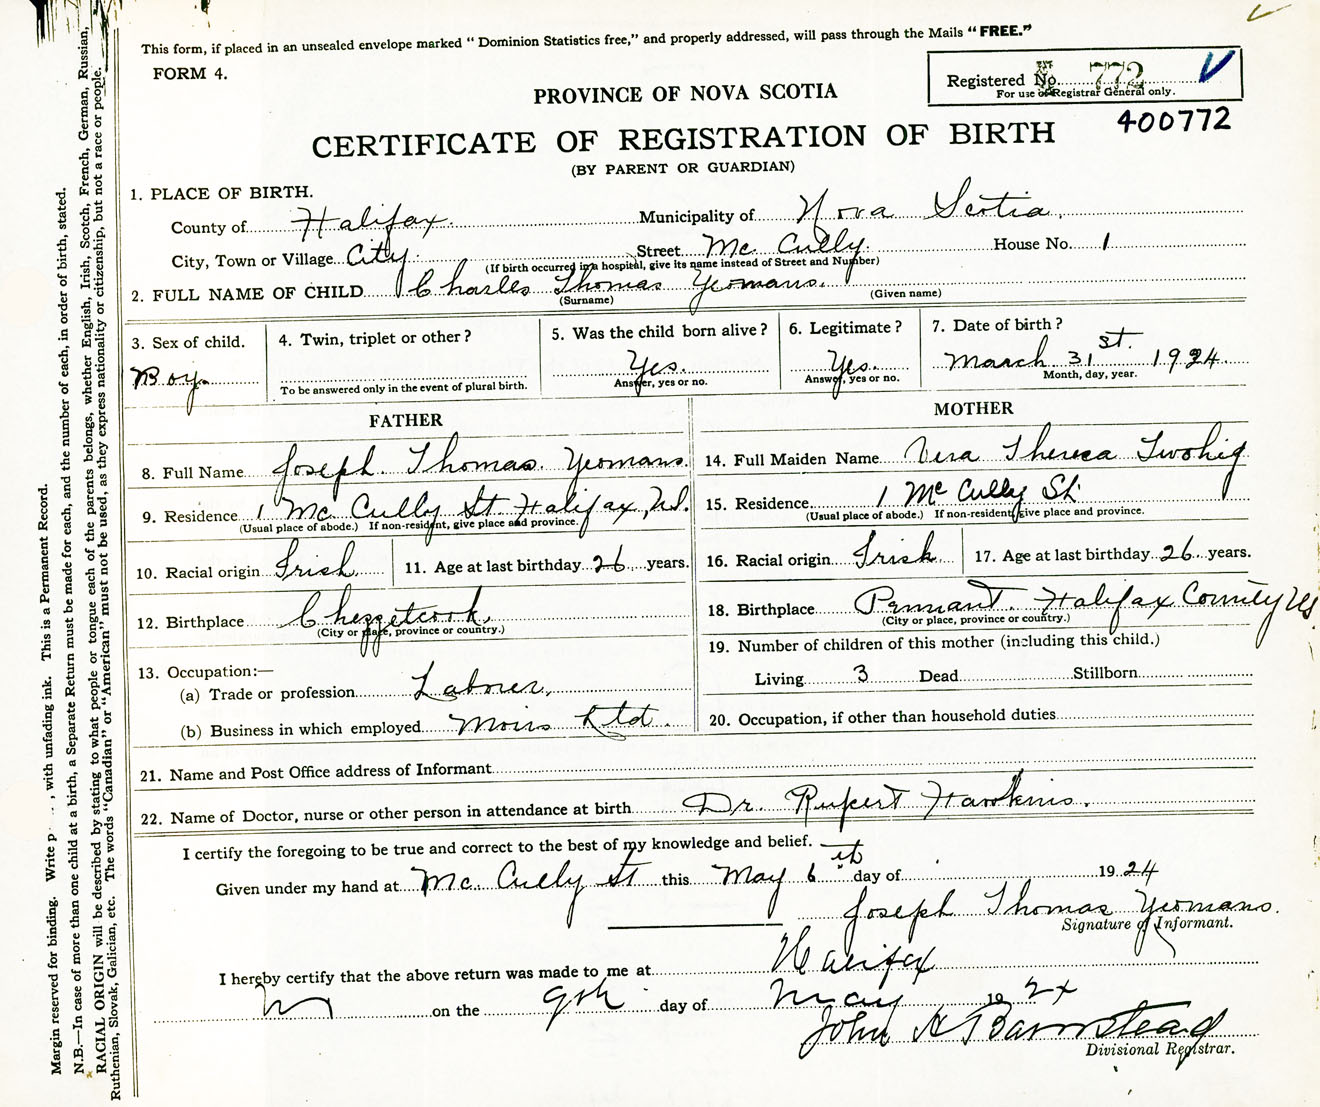 This form, if placed in an unsealed envelope marked “ Dominion Statistics free,” and properly addressed, will pass through the Mails “ FREE.”
FORM 4.
Registered No. 772
For use of Registrar General only.
400772
PROVINCE OF NOVA SCOTIA
CERTIFICATE OF REGISTRATION OF BIRTH
(BY PARENT OR GUARDIAN)
1. PLACE OF BIRTH.
County of Halifax. Municipality of Nova Scotia.
City, Town or Village City. Street Mc Cully. House No. 1
(If birth occurred in a hospital, give its name instead of Street and Number)
2. FULL NAME OF CHILD Charles Thomas Yeomans.
(Surname) (Given name)
3. Sex of child. Boy.
4. Twin, triplet or other ?
To be answered only in the event of plural birth.
5. Was the child born alive ? Yes.
Answer, yes or no.
6. Legitimate ? Yes.
Answer, yes or no.
7. Date of birth ?
March 31st. 1924
Month, day, year.
FATHER
8. Full Name Joseph Thomas Yeomans.
9. Residence 1 Mc Cully St Halifax, N.S.
(Usual place of abode.) If non-resident, give place and province.
10. Racial origin Irish 11. Age at last birthday 26 years.
12. Birthplace Chezzetcook.
(City or place, province or country.)
13. Occupation:—
(a) Trade or profession Laborer.
(b) Business in which employed Moirs Ltd.
MOTHER
14. Full Maiden Name Vera Theresa Twohig
15. Residence 1 Mc Cully St.
(Usual place of abode.) If non-resident, give place and province.
16. Racial origin Irish 17. Age at last birthday 26 years.
18. Birthplace Pennant. Halifax County NS.
(City or place, province or country.)
19. Number of children of this mother (including this child.)
Living 3 Dead Stillborn
20. Occupation, if other than household duties
21. Name and Post Office address of Informant
22. Name of Doctor, nurse or other person in attendance at birth Dr. Rupert Hawkins.
I certify the foregoing to be true and correct to the best of my knowledge and belief.
Given under my hand at Mc. Cully St this May 6th day of 1924
Joseph Thomas Yeomans.
Signature of Informant.
I hereby certify that the above return was made to me at Halifax
on the 9th day of May 1924
John A Barnstead
Divisional Registrar.
Margin reserved for binding. Write p , with unfading ink. This is a Permanent Record.
N.B.—In case of more than one child at a birth, a Separate Return must be made for each, and the number of each, in order of birth, stated.
RACIAL ORIGIN will be described by stating to what people or tongue each of the parents belongs, whether English, Irish, Scotch, French, German, Russian,
Ruthenian, Slovak, Galician, etc. The words “Canadian” or “American” must not be used, as they express nationality or citizenship, but not a race or people.